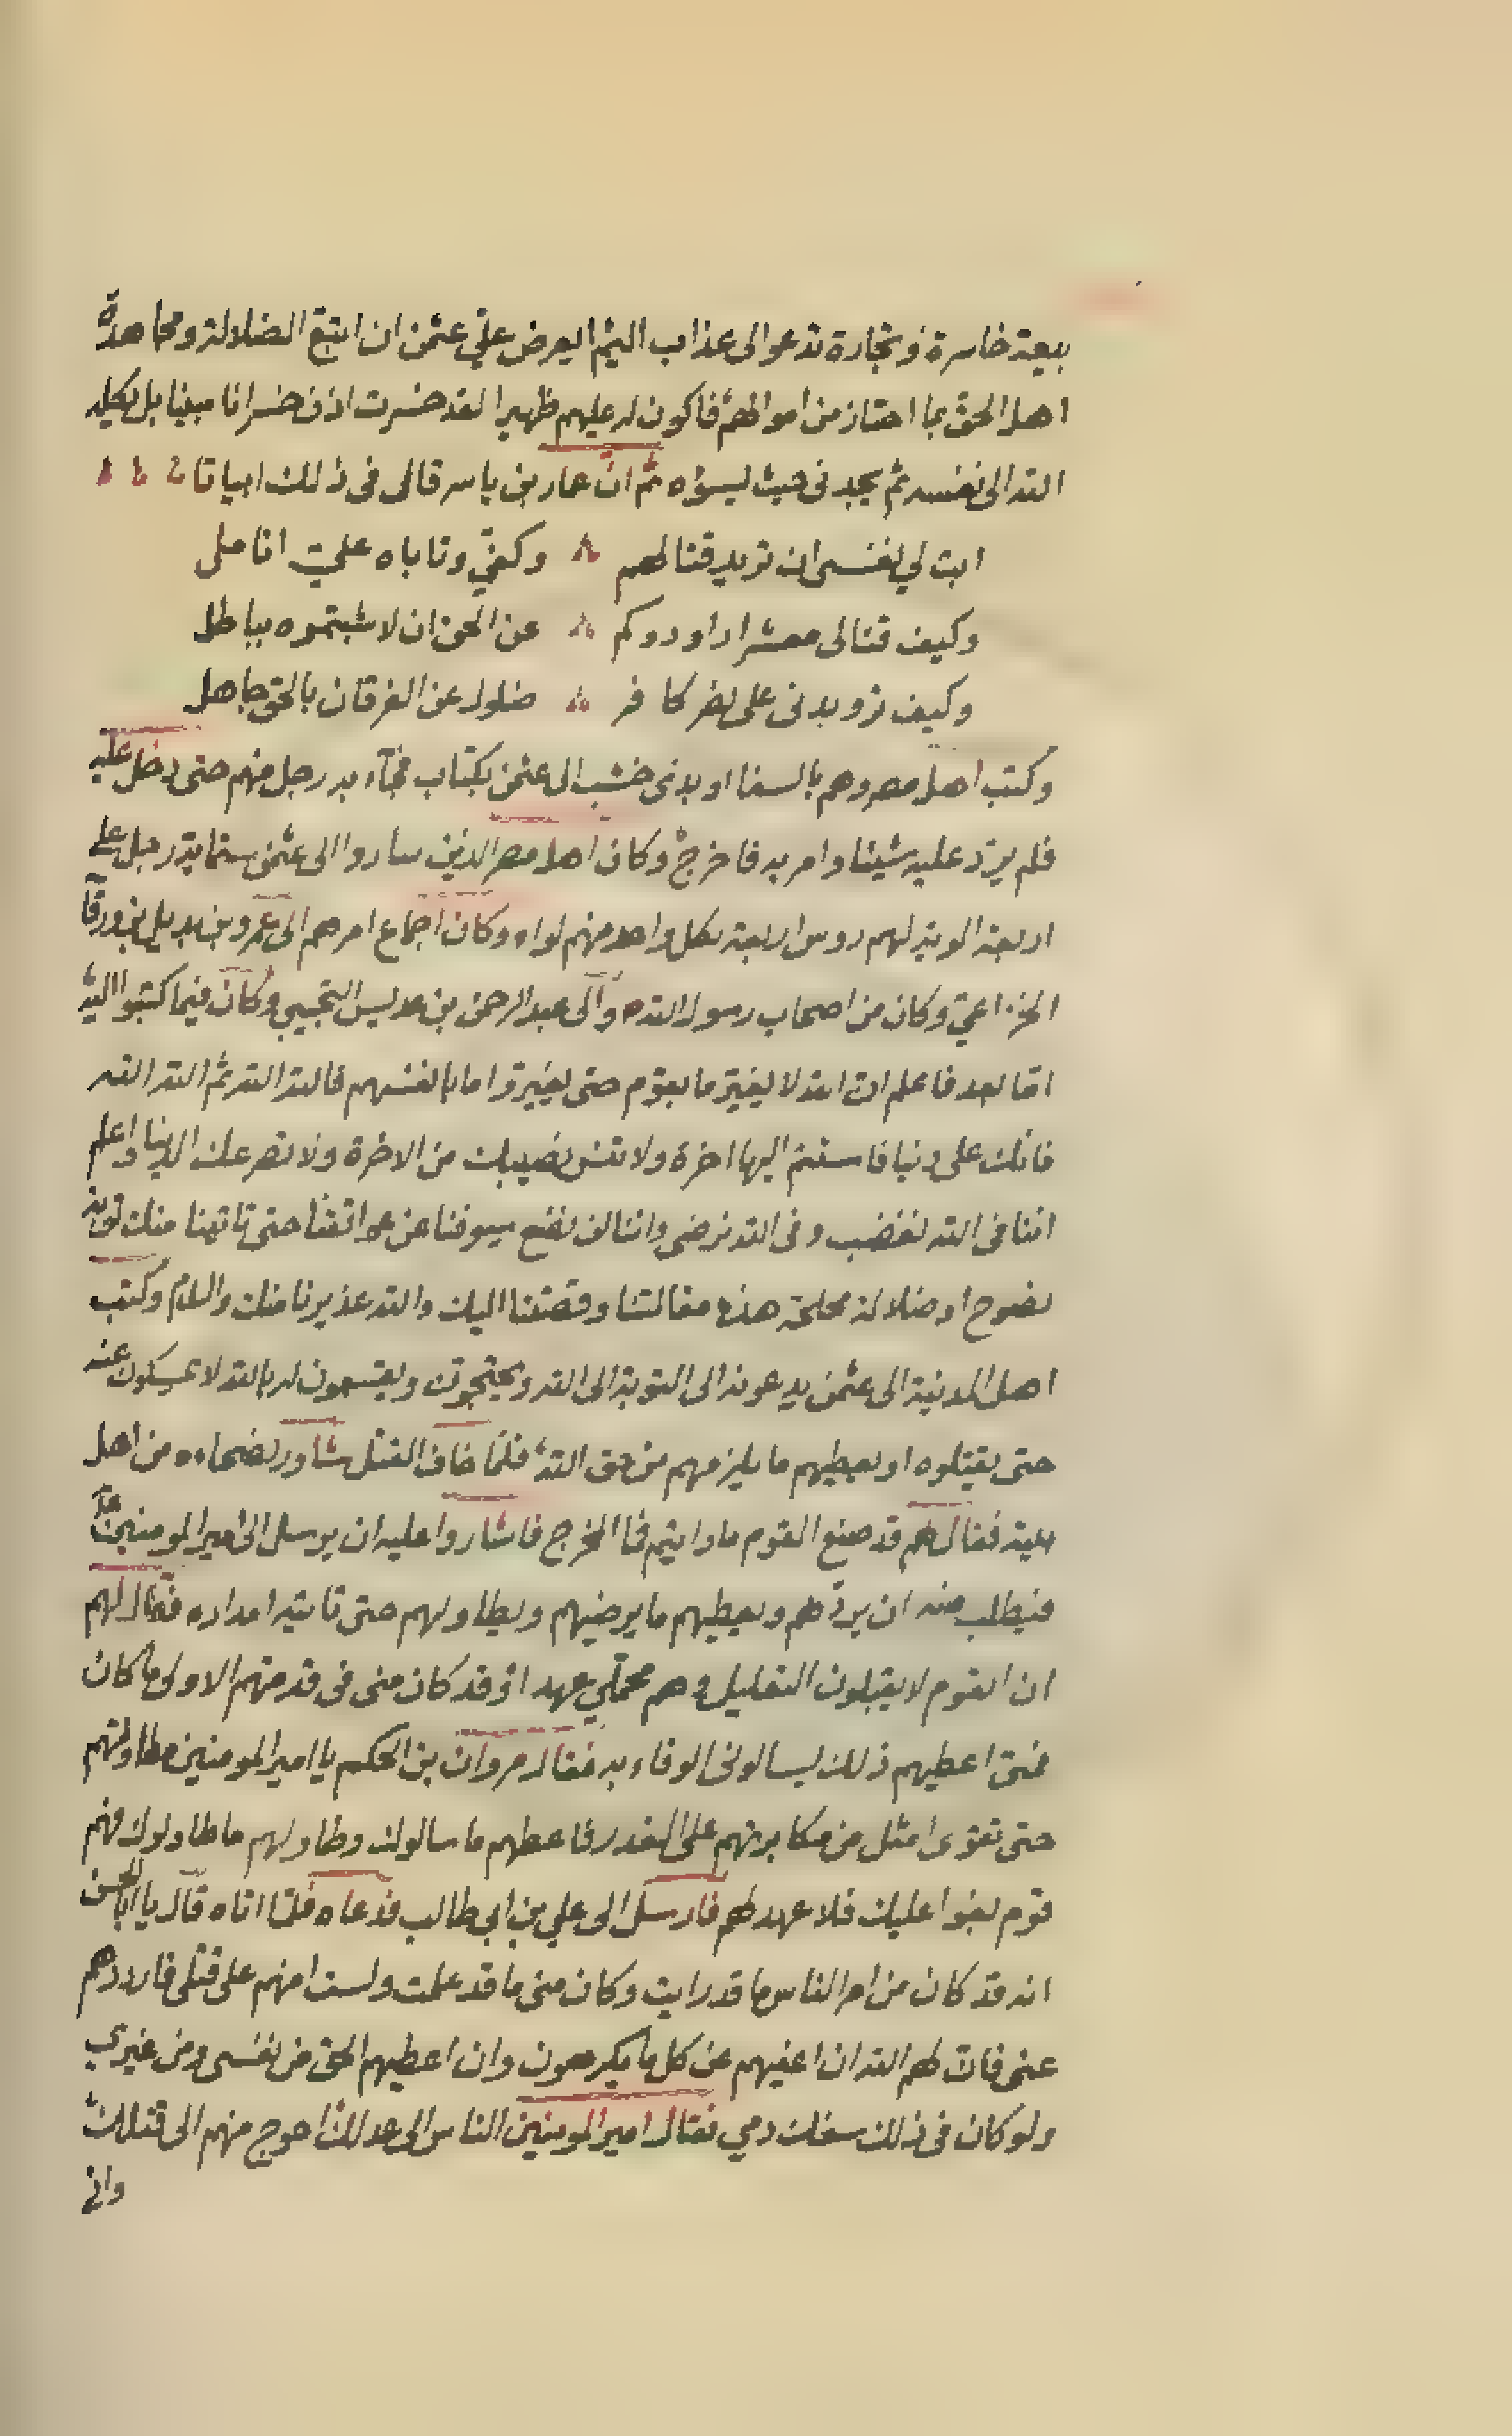 بيعة خاسرة وتجارة تدعو الى عذاب اليم ايعرض علي عثمن ان اتبع الضلالة ومجاهدة
اهل الحق بما احتاز من اموالهم فاكون له عليهم ظهيرا لقد خسرت اذن خسرانا مبينا بل يكله
الله الى نفسه ثم يجد في حيث ليسؤه ثم ان عمار بن ياسر قال في ذلك ابياتا
ابت لي نفسي ان تريد قتالهم وكفي وتاباه علي انا ملى
وكيف قتالي معشرا داودوكم عن الحق ان لا شبتموه بباطل
وكيف تزويدني على نفر كافر ضلول عن الفرقان بالحق جاهل
وكتب اهل مصر وهم بالسقا او بذي خشب الى عثمن بكتاب فجآء به رجل منهم حتى دخل عليه
فلم يرد عليه شيئا وامر به فاخرج وكان اهل مصر الذين ساروا الى عثمن ستماية رجل على
اربعة الوية لهم روس اربعة بكل واحد منهم لواء وكان اجماع امرهم الى عمرو بن بديل بن ورقآ
الخزاعي وكان من اصحاب رسول الله والى عبد الرحمن بن عديس التجيبي وكان فيما كتبوا اليه
اما بعد فاعلم ان الله لا يغير ما بقوم حتى يغيروا ما بانفسهم فالله الله ثم الله الله
فانك على دنيا فاستتم اليها اخرة ولا تنس نصيبك من الاخرة ولا تصر عنك الدنيا واعلم
اننا في الله نغضب وفي الله نرضى واننا لن نضع سيوفنا عن عواتقنا حتى تاتينا منك توبة
نصوح او ضلالة مجلحة هذه مقالتنا وقصتنا اليك والله عذيرنا منك والسلام وكتب
اهل المدينة الى عثمن يدعونه الى التوبة الى الله ويحتجون ويقسمون له بالله لا يمسكون عنه
حتى يقتلوه او يعطيهم ما يلزمهم من حق الله فلما خاف القتل شاور نصحاءه من اهل
بيته فقال لهم قد صنع القوم ما رايتم فما المخرج فاشاروا عليه ان يرسل الى امير المومنين
فيطلب منه ان يردهم ويعطيهم ما يرضيهم ويطاولهم حتى تاتيه امداده فقال لهم
ان القوم لا يقبلون التعليل وهم محملي عهدا وقد كان منى في قدمتهم الاولى ما كان
فمتى اعطيهم ذلك يسالوني الوفاء به فقال مروان بن الحكم يا امير المومنين مطاولتهم
حتى تقوى امثل من مكابرتهم على الغدر فاعطهم ما سالوك وطاولهم ما طاولوك فهم
قوم بغوا عليك فلا عهد لهم فارسل الى علي بن ابي طالب فدعاه فلما اتاه قال يا ابا الحسن
انه قد كان من امر الناس ما قد رايت وكان منى ما قد علمت ولست امنهم على قتلى فارددهم
عنى فان لهم الله ان اعفيهم عن كل ما يكرهون وان اعطيهم الحق من نفسى ومن غيري
ولو كان في ذلك سفك دمي فقال امير المومنين الناس الى عدلك احوج منهم الى قتلك
واني